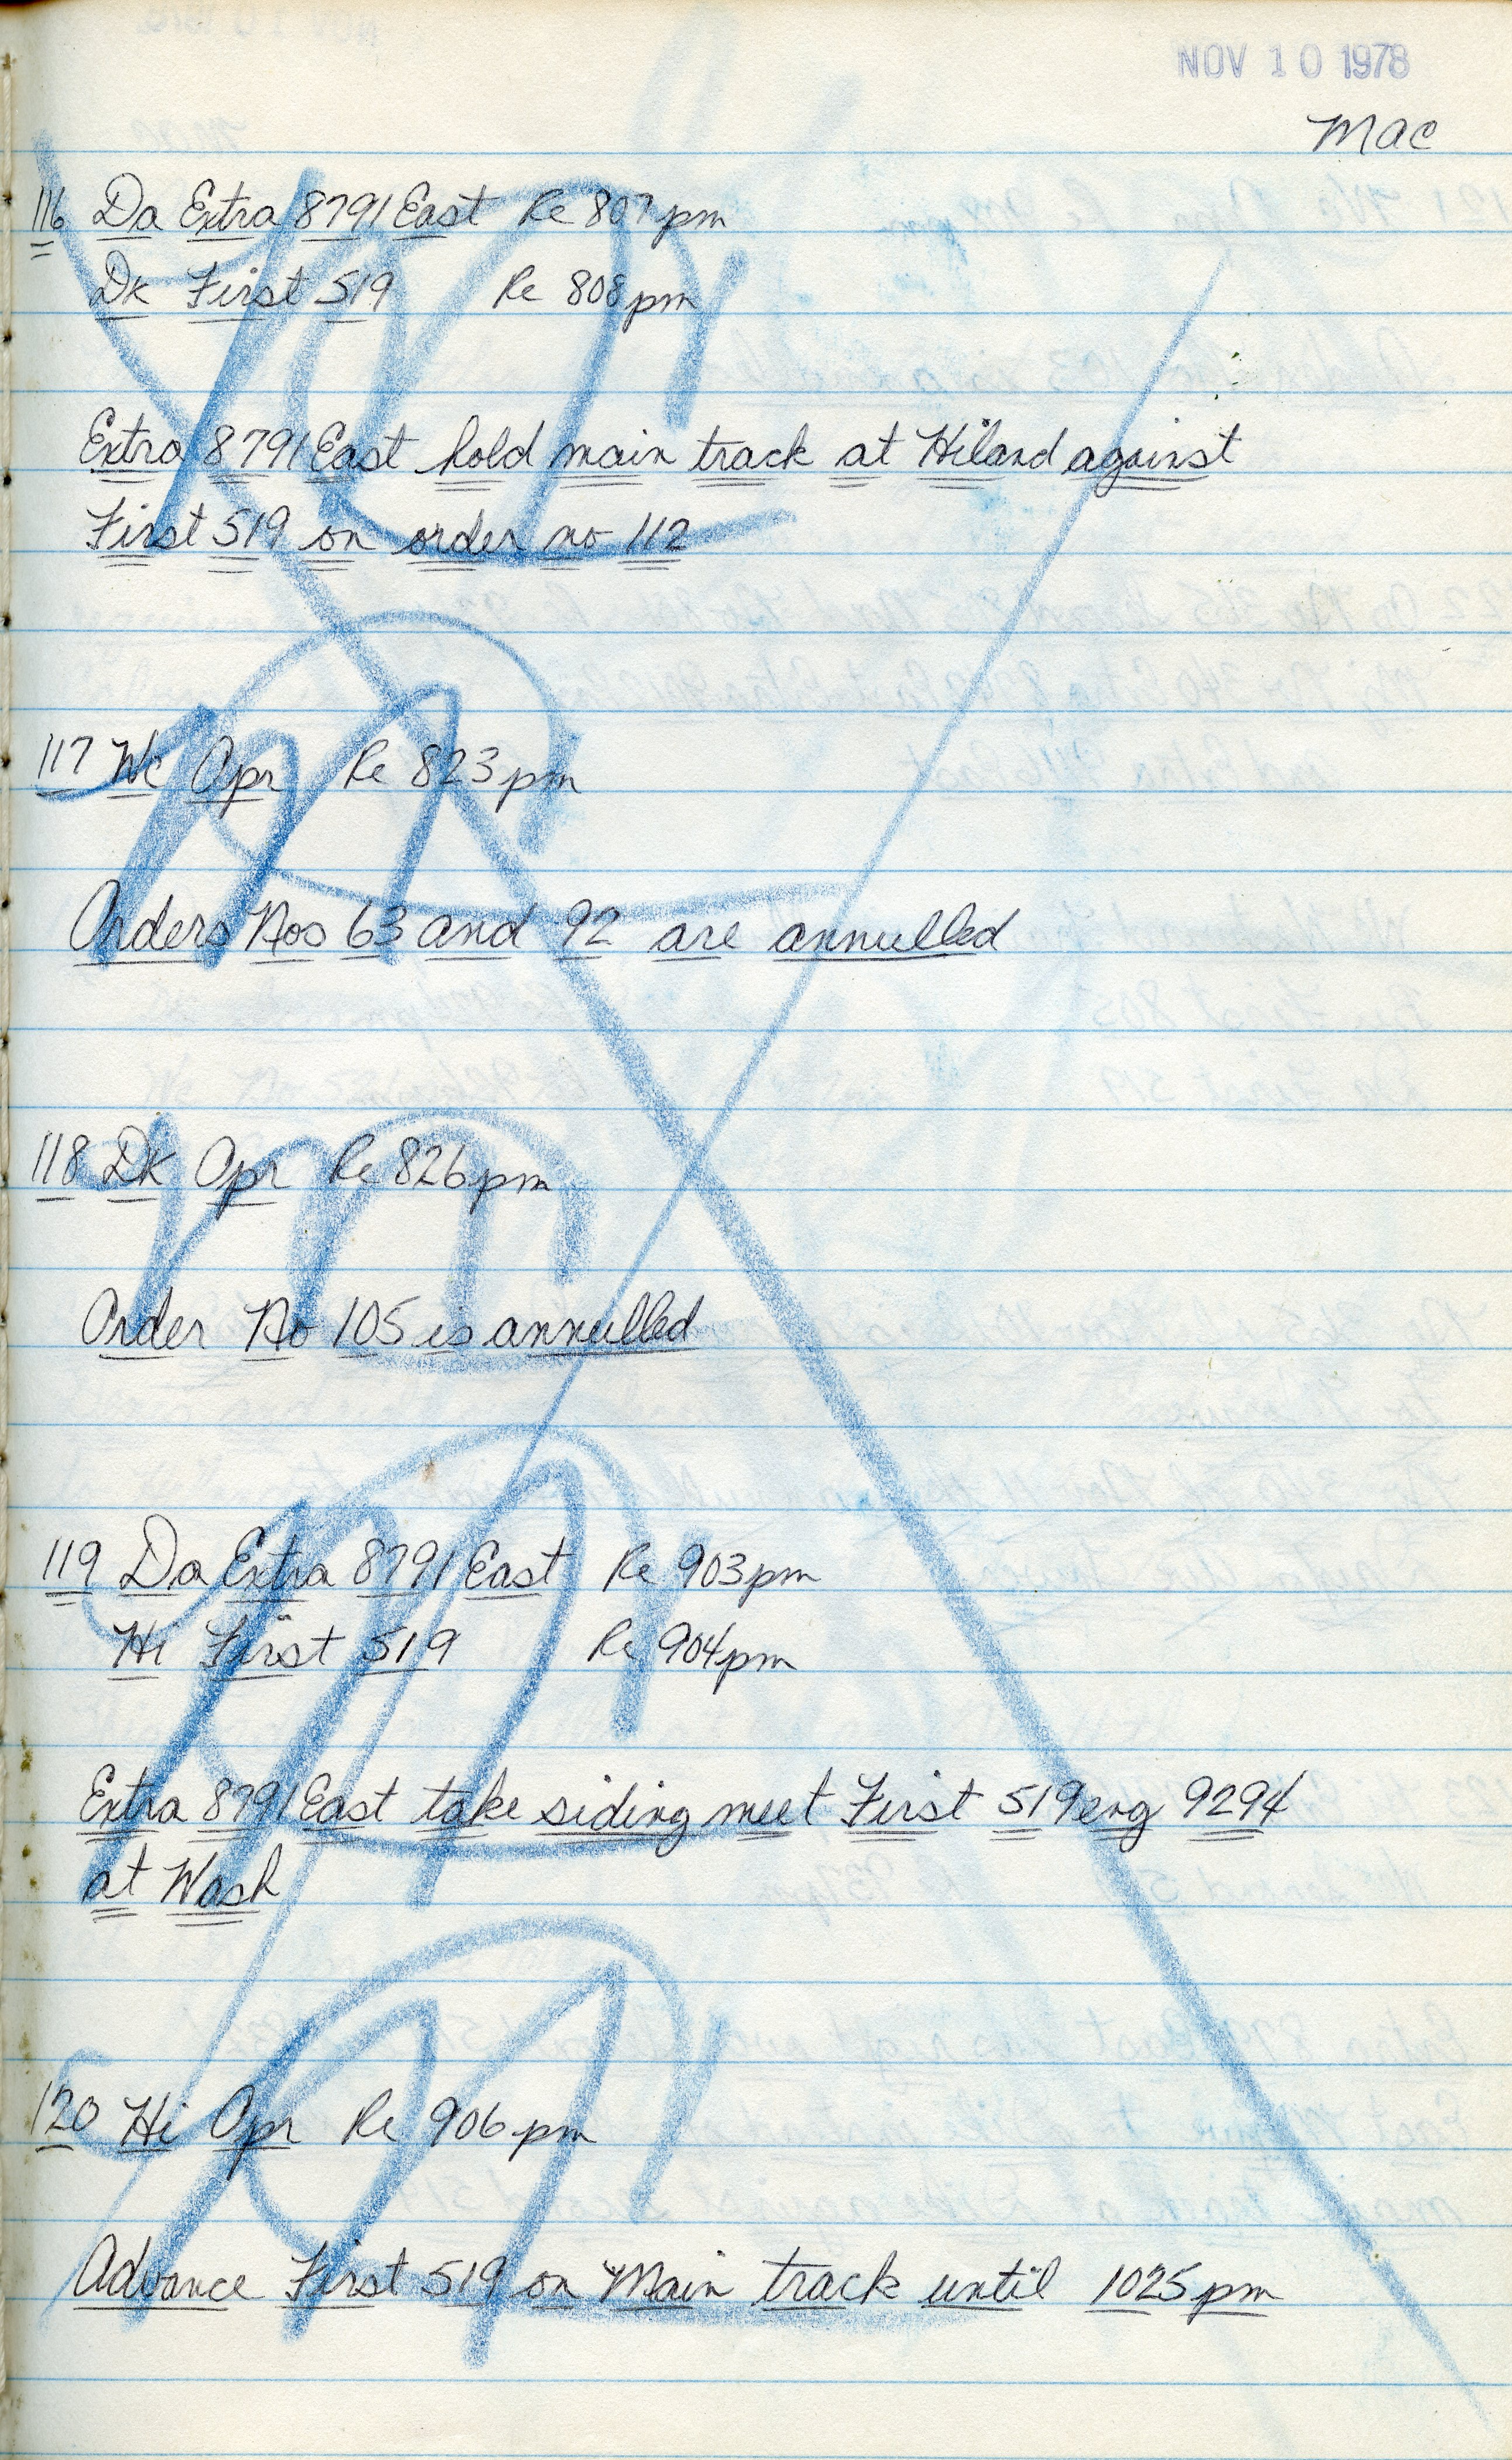 NOV 10 1978
Mac
116 Da Extra 8791 East Re 807pm
Dk First 519 Re 808pm
Extra 8791 East hold main track at Hiland against
First 519 on order no 112
117 Wc Opr Re 823pm
Orders Nos 63 and 92 are annulled
118 Dk Opr Re 826pm
Order No 105 is annulled
119 Da Extra 8791 East Re 903pm
Hi First 519 Re 904pm
Extra 8791 East take siding meet First 519 eng 9294
at Wash
120 Hi Opr Re 906pm
Advance First 519 on Main track until 1025pm